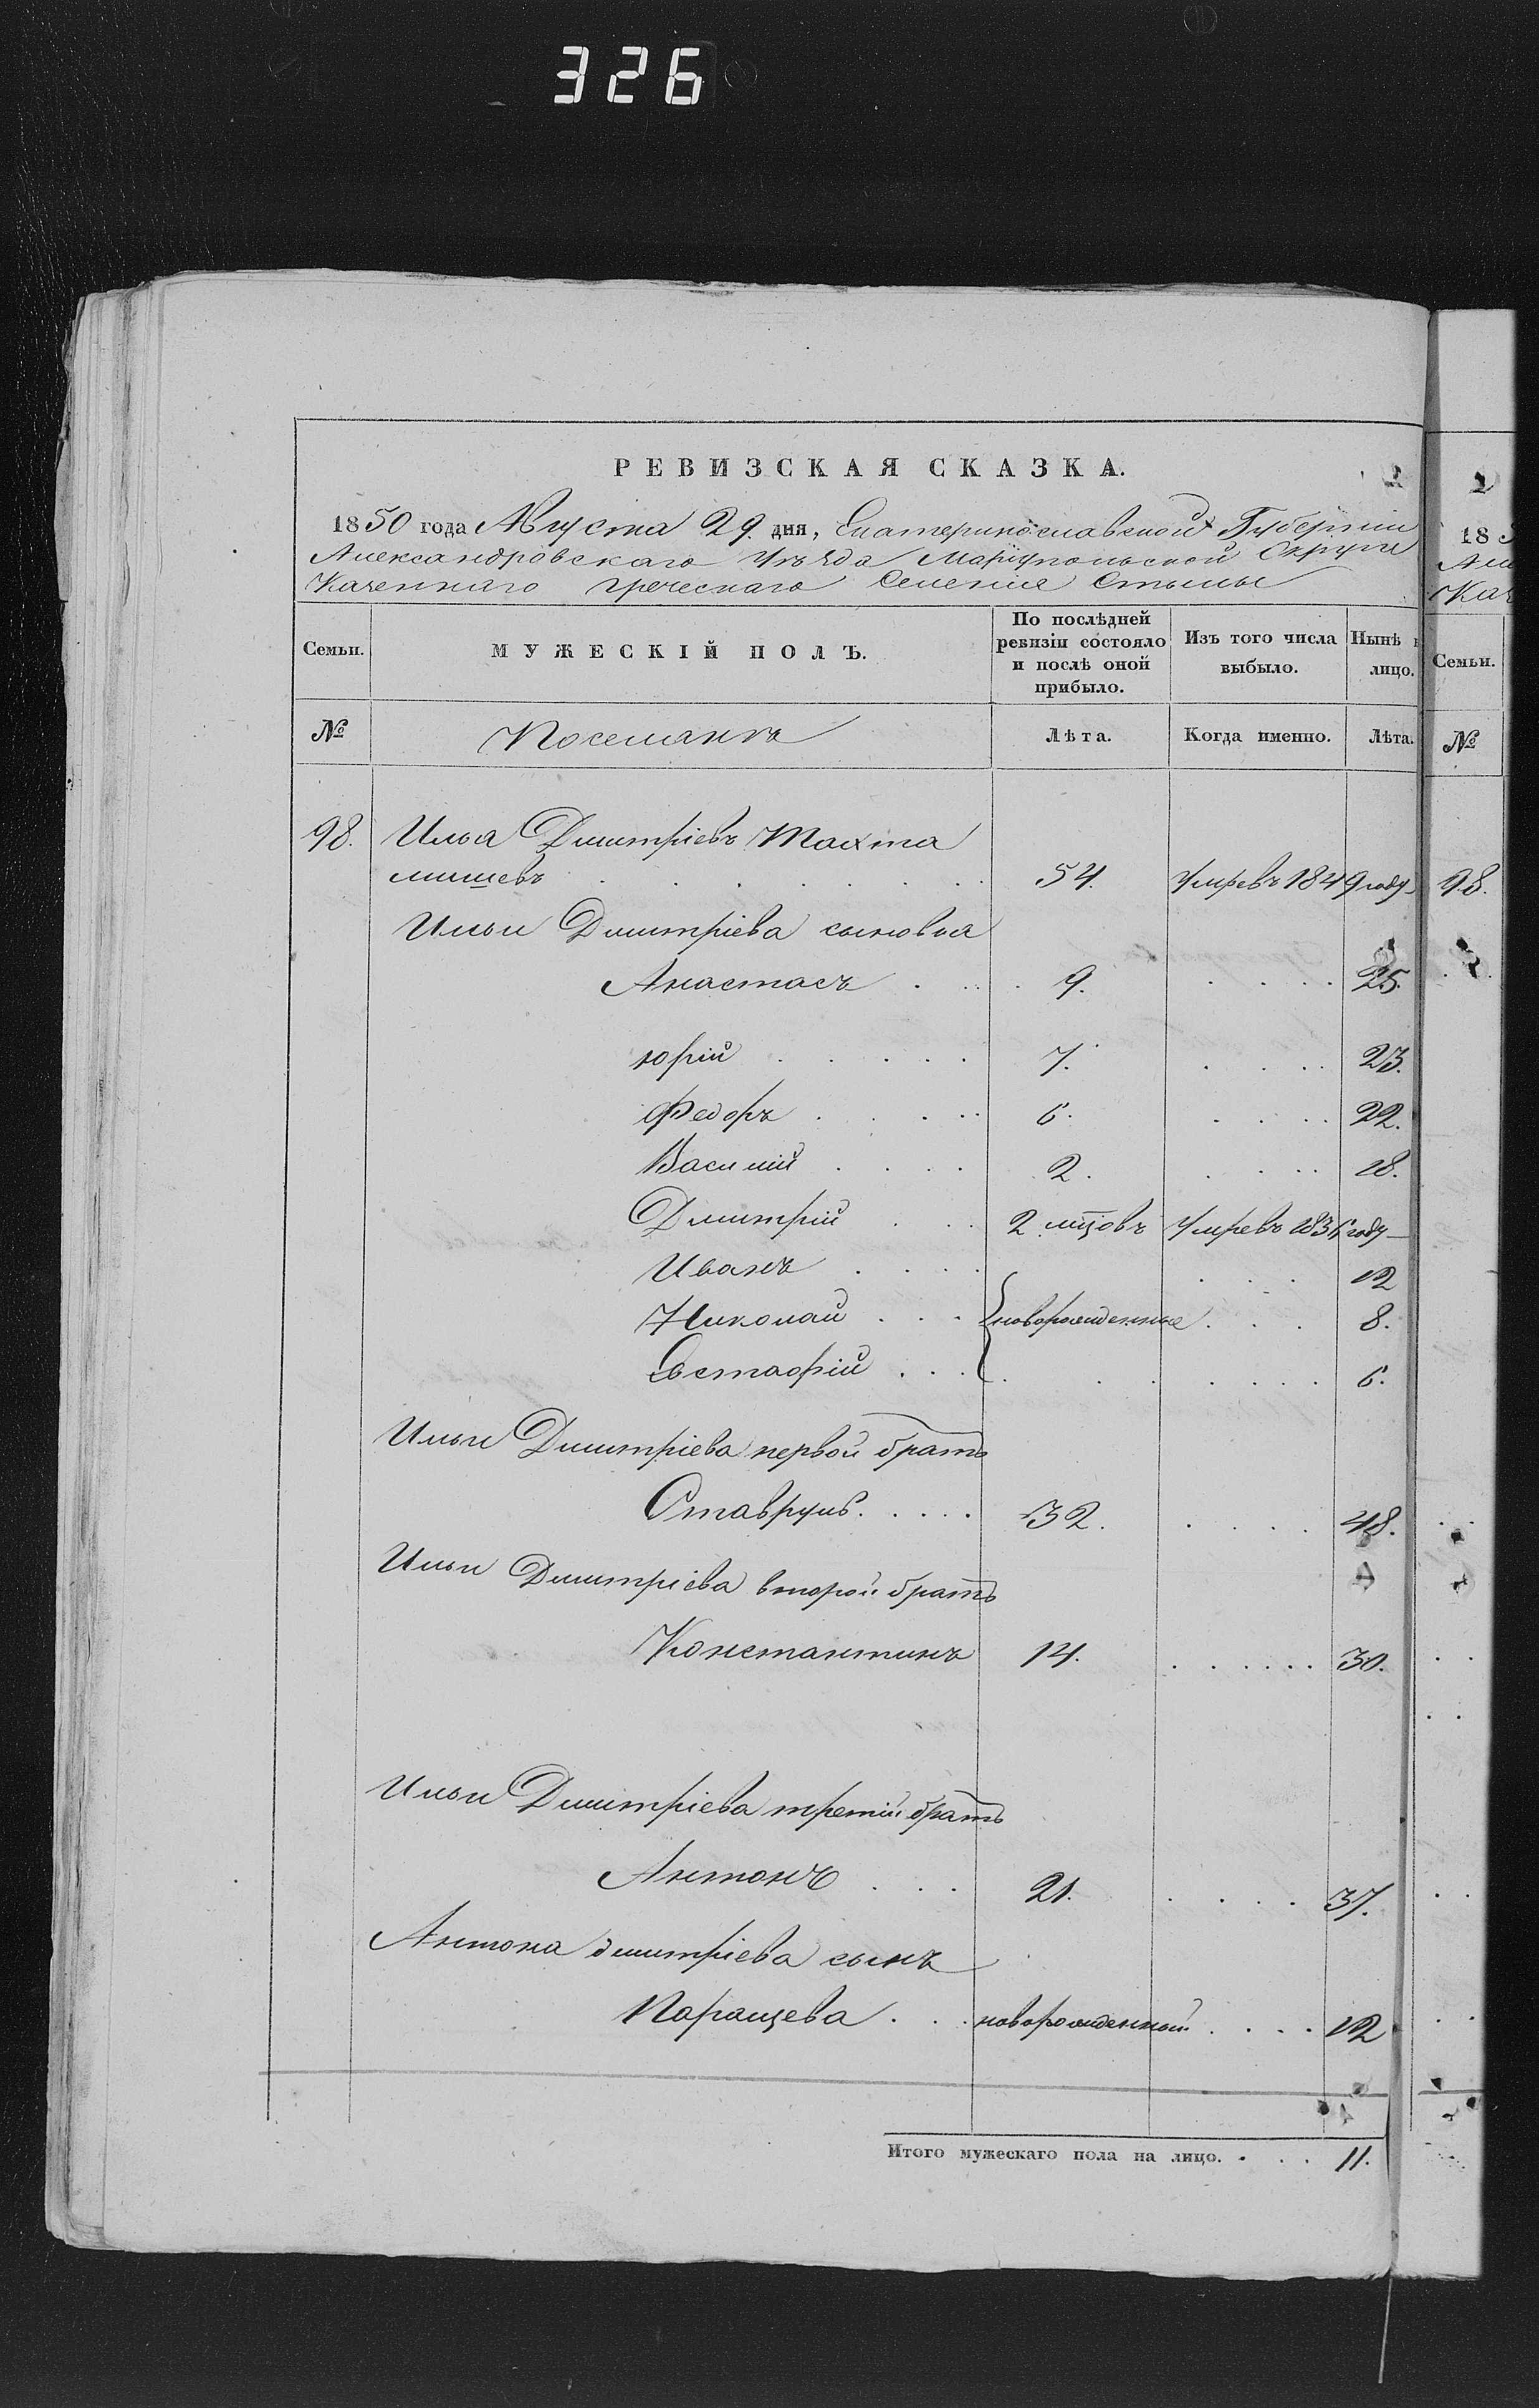 326
РЕВИЗСКАЯ СКАЗКА.
1850 года Августа 29. дня, Екатеринославской Губернии
Александровскаго Уѣзда Маріупольской Округи
Казеннаго греческаго Селенія Стылы
Семьи.
МУЖЕСКІЙ ПОЛЪ.
По послѣдней ревизіи состояло и послѣ оной прибыло.
Изъ того числа выбыло.
Нынѣ
лицо.
№
Поселянъ
Лѣта.
Когда именно.
Лѣта.
98. Илья Дмитріевъ Тахта
мышевъ 54. Умревъ 1849 году
Ильи Дмитріева сыновья
Анастасъ 9. 25.
Юрій 7. 23.
Федоръ 6. 22.
Василій 2. 18.
Дмитрій 2 мцовъ Умревъ 1836 году
Иванъ 12
Николай новорожденные 8.
Евстафій 6.
Ильи Дмитріева первой братъ
Ставрулъ 32. 48.
Ильи Дмитріева второй братъ
Константинъ 14. 30.
Ильи Дмитріева третій братъ
Антонъ 21. 37.
Антона Дмитріева сынъ
Паращева новорожденный 12
Итого мужескаго пола на лицо. 11.
18
Семьи.
№
98.